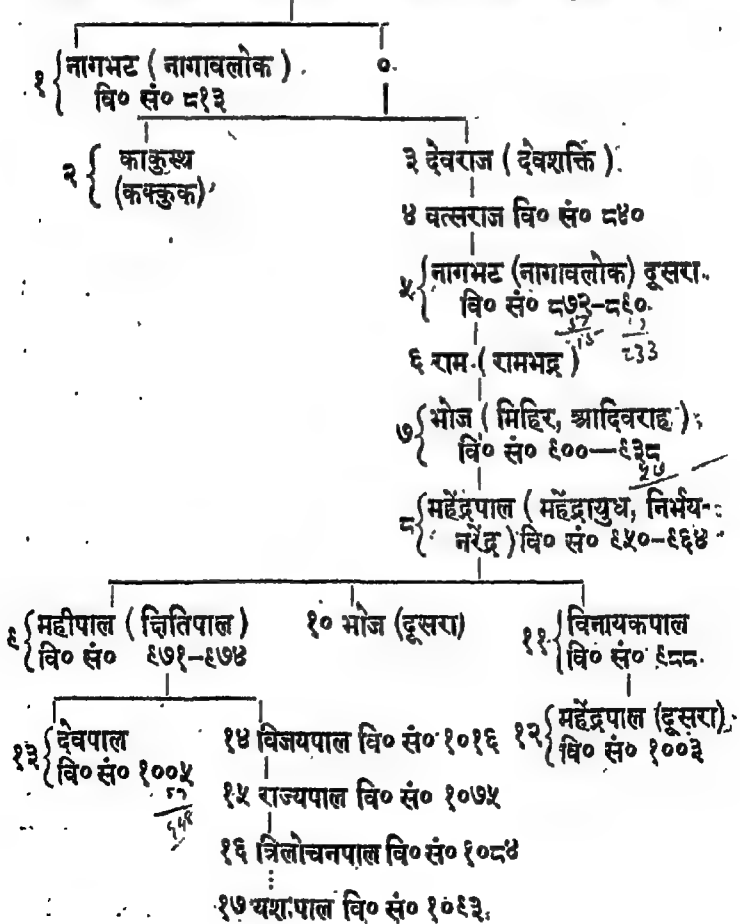 १ { नागभट ( नागावलोक ) .
वि० सं० ८१३
०
२ { काकुस्थ
(कक्कुक)
३ देवराज ( देवशक्ति ).
४ वत्सराज वि० सं० ८४०
५ { नागभट (नागावलोक) दूसरा
वि० सं० ८७२–८९०
६ राम ( रामभद्र )
७ { भोज ( मिहिर, आदिवराह )
वि० सं० ९००—९३८
८ { महेंद्रपाल ( महेंद्रायुध, निर्भय-
नरेंद्र ) वि० सं० ९५०–९६४
९ { महीपाल ( क्षितिपाल )
वि० सं० ९७१–९७४
१० भोज (दूसरा)
११ { विनायकपाल
वि० सं० ९८८
१२ { महेंद्रपाल (दूसरा)
वि० सं० १००३
१३ { देवपाल
वि० सं० १००५
१४ विजयपाल वि० सं० १०१६
१५ राज्यपाल वि० सं० १०७५
१६ त्रिलोचनपाल वि० सं० १०८४
१७ यशःपाल वि० सं० १०९३